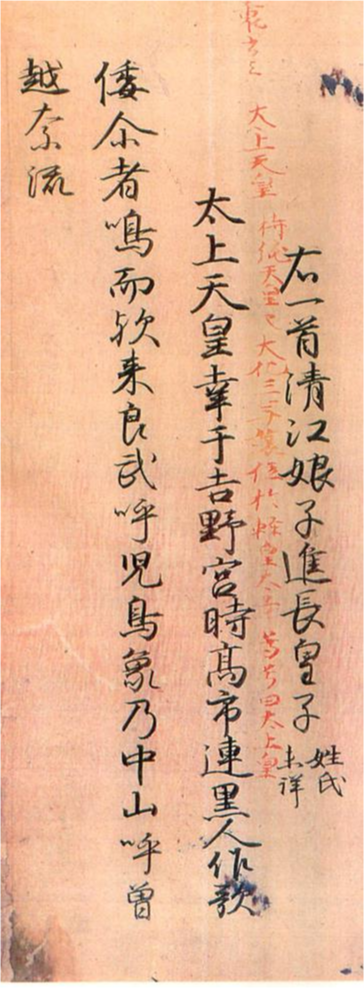 右一首清江娘子進長皇子 姓氏未詳
太上天皇幸于吉野宮時高市連黒人作歌
倭尓者鳴而欤来良武呼児鳥象乃中山呼曽
越奈流
大上天皇 持統天皇也 大化三年譲位於軽皇太子 尊号曰太上皇